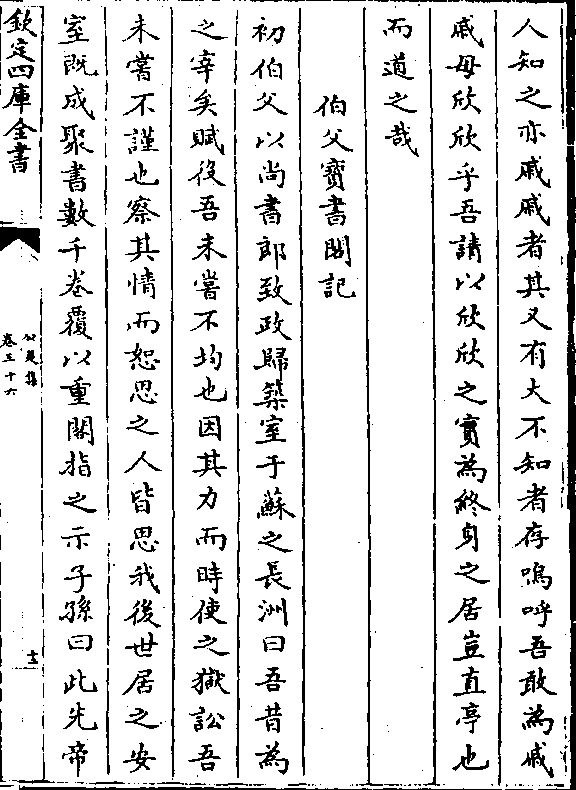 人知之亦戚戚者其又有大不知者存嗚呼吾敢為戚
戚毋欣欣乎吾請以欣欣之實為終身之居豈直亭也
而道之哉
伯父寶書閣記
初伯父以尚書郎致政歸築室于蘇之長洲曰吾昔為
之宰矣賦役吾未嘗不均也因其力而時使之獄訟吾
未嘗不謹也察其情而恕思之人皆思我後世居之安
室既成聚書數千卷覆以重閣指之示子孫曰此先帝
欽定四庫全書
公是集
卷三十六
十三